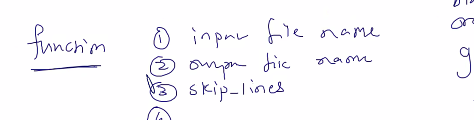 function
① input file name
② output file name
③ skip_lines
④